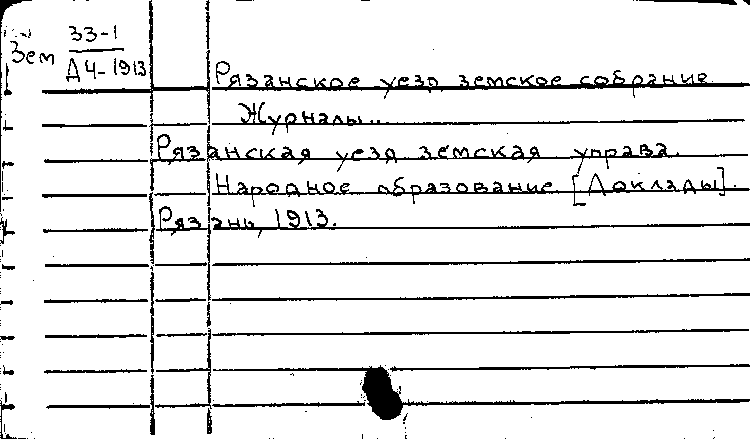 Зем 33-1
Д4-1913
Рязанское уезд земское собрание.
Журналы..
Рязанская уезд земская управа.
Народное образование [Доклады].
Рязань, 1913.